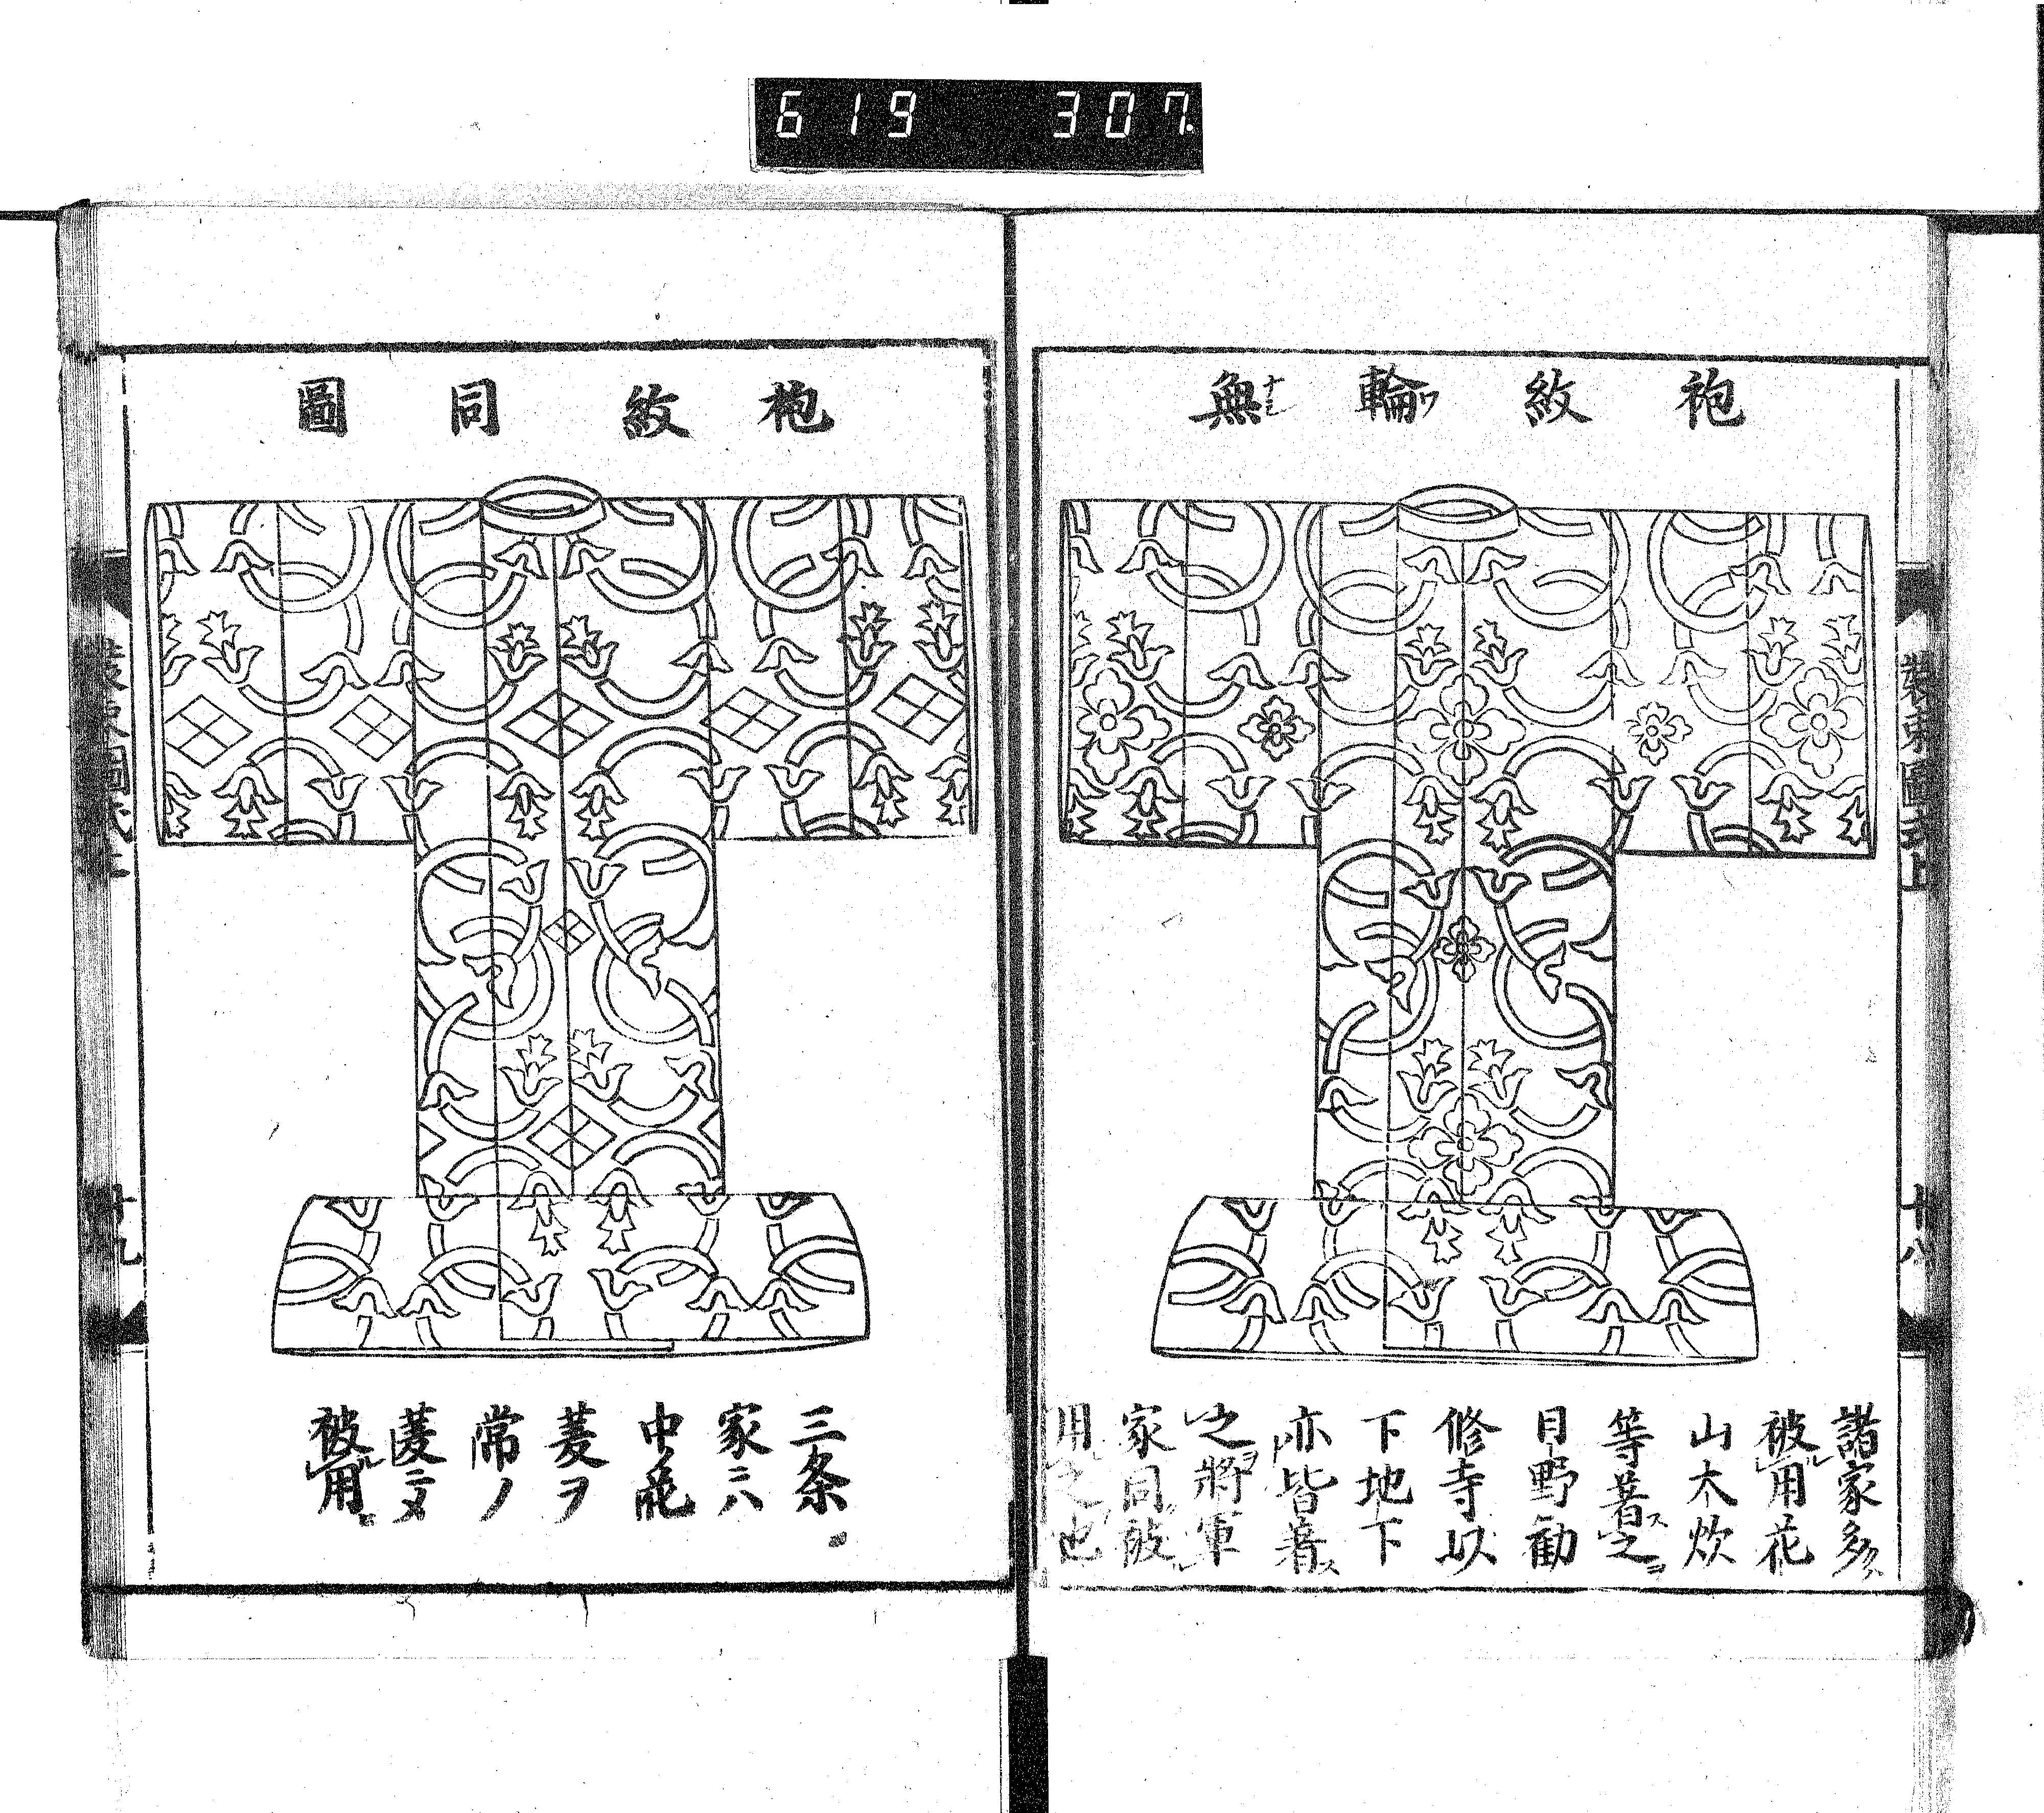 619 307.
袍紋輪無
諸家多
被用花
山大炊
等着之
日野勧
修寺以
下地下
亦皆着
之将軍
家同被
用之也
装束圖式上
十八
袍紋同圖
三条
家ニハ
中花
菱ヲ
常ノ
菱ニヌ
被用
十九